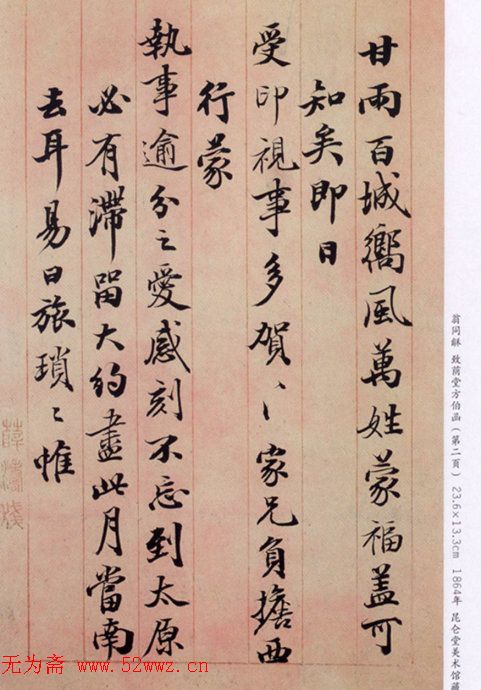 甘雨百城嚮風萬姓蒙福蓋可
知矣即日
受印視事多賀〻家兄負擔西
行蒙
執事逾分之愛感刻不忘到太原
必有滯留大約盡此月當南
去耳易曰旅瑣〻惟
翁同龢 致荫堂方伯函（第二頁） 23.6×13.3cm 1864年 昆仑堂美术馆藏
薛濤箋
无为斋 www.52wwz.cn